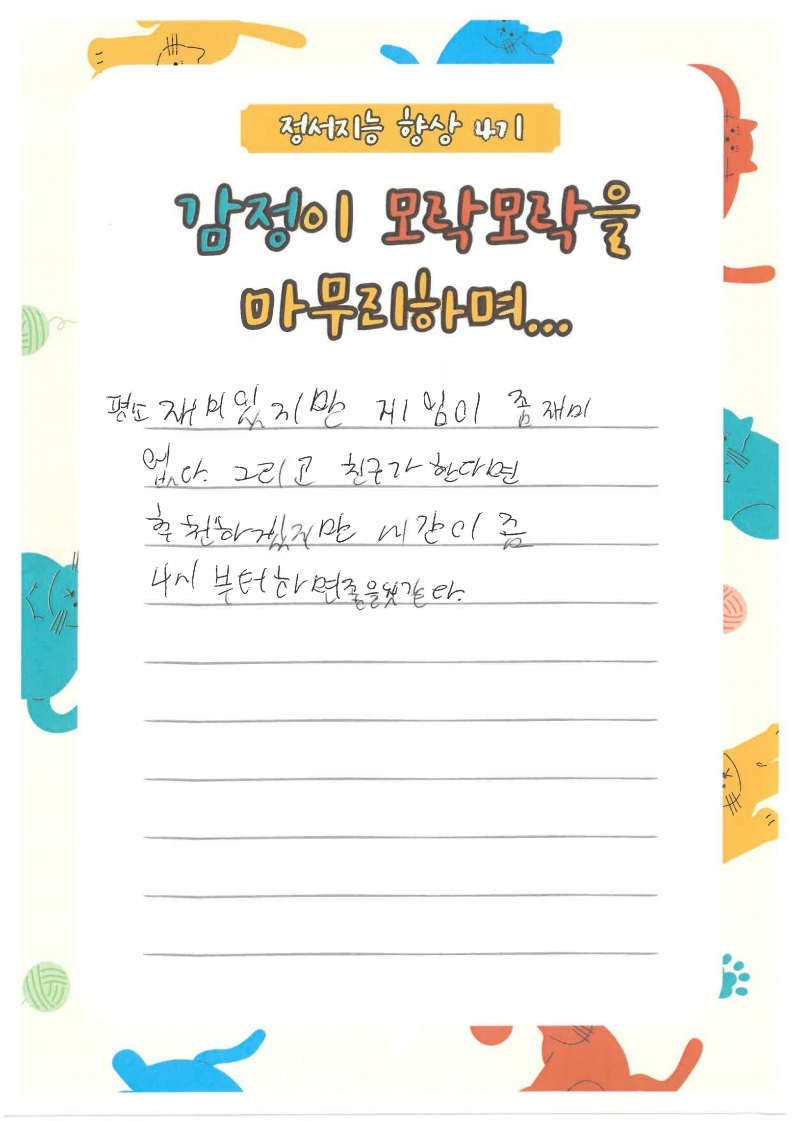 정서지능 향상 4기
감정이 모락모락을
마무리하며...
평소 재미있지만 게임이 좀 재미
없다. 그리고 친구가 한다면
추천하겠지만 시간이 좀
4시 부터하면좋을껏같다.